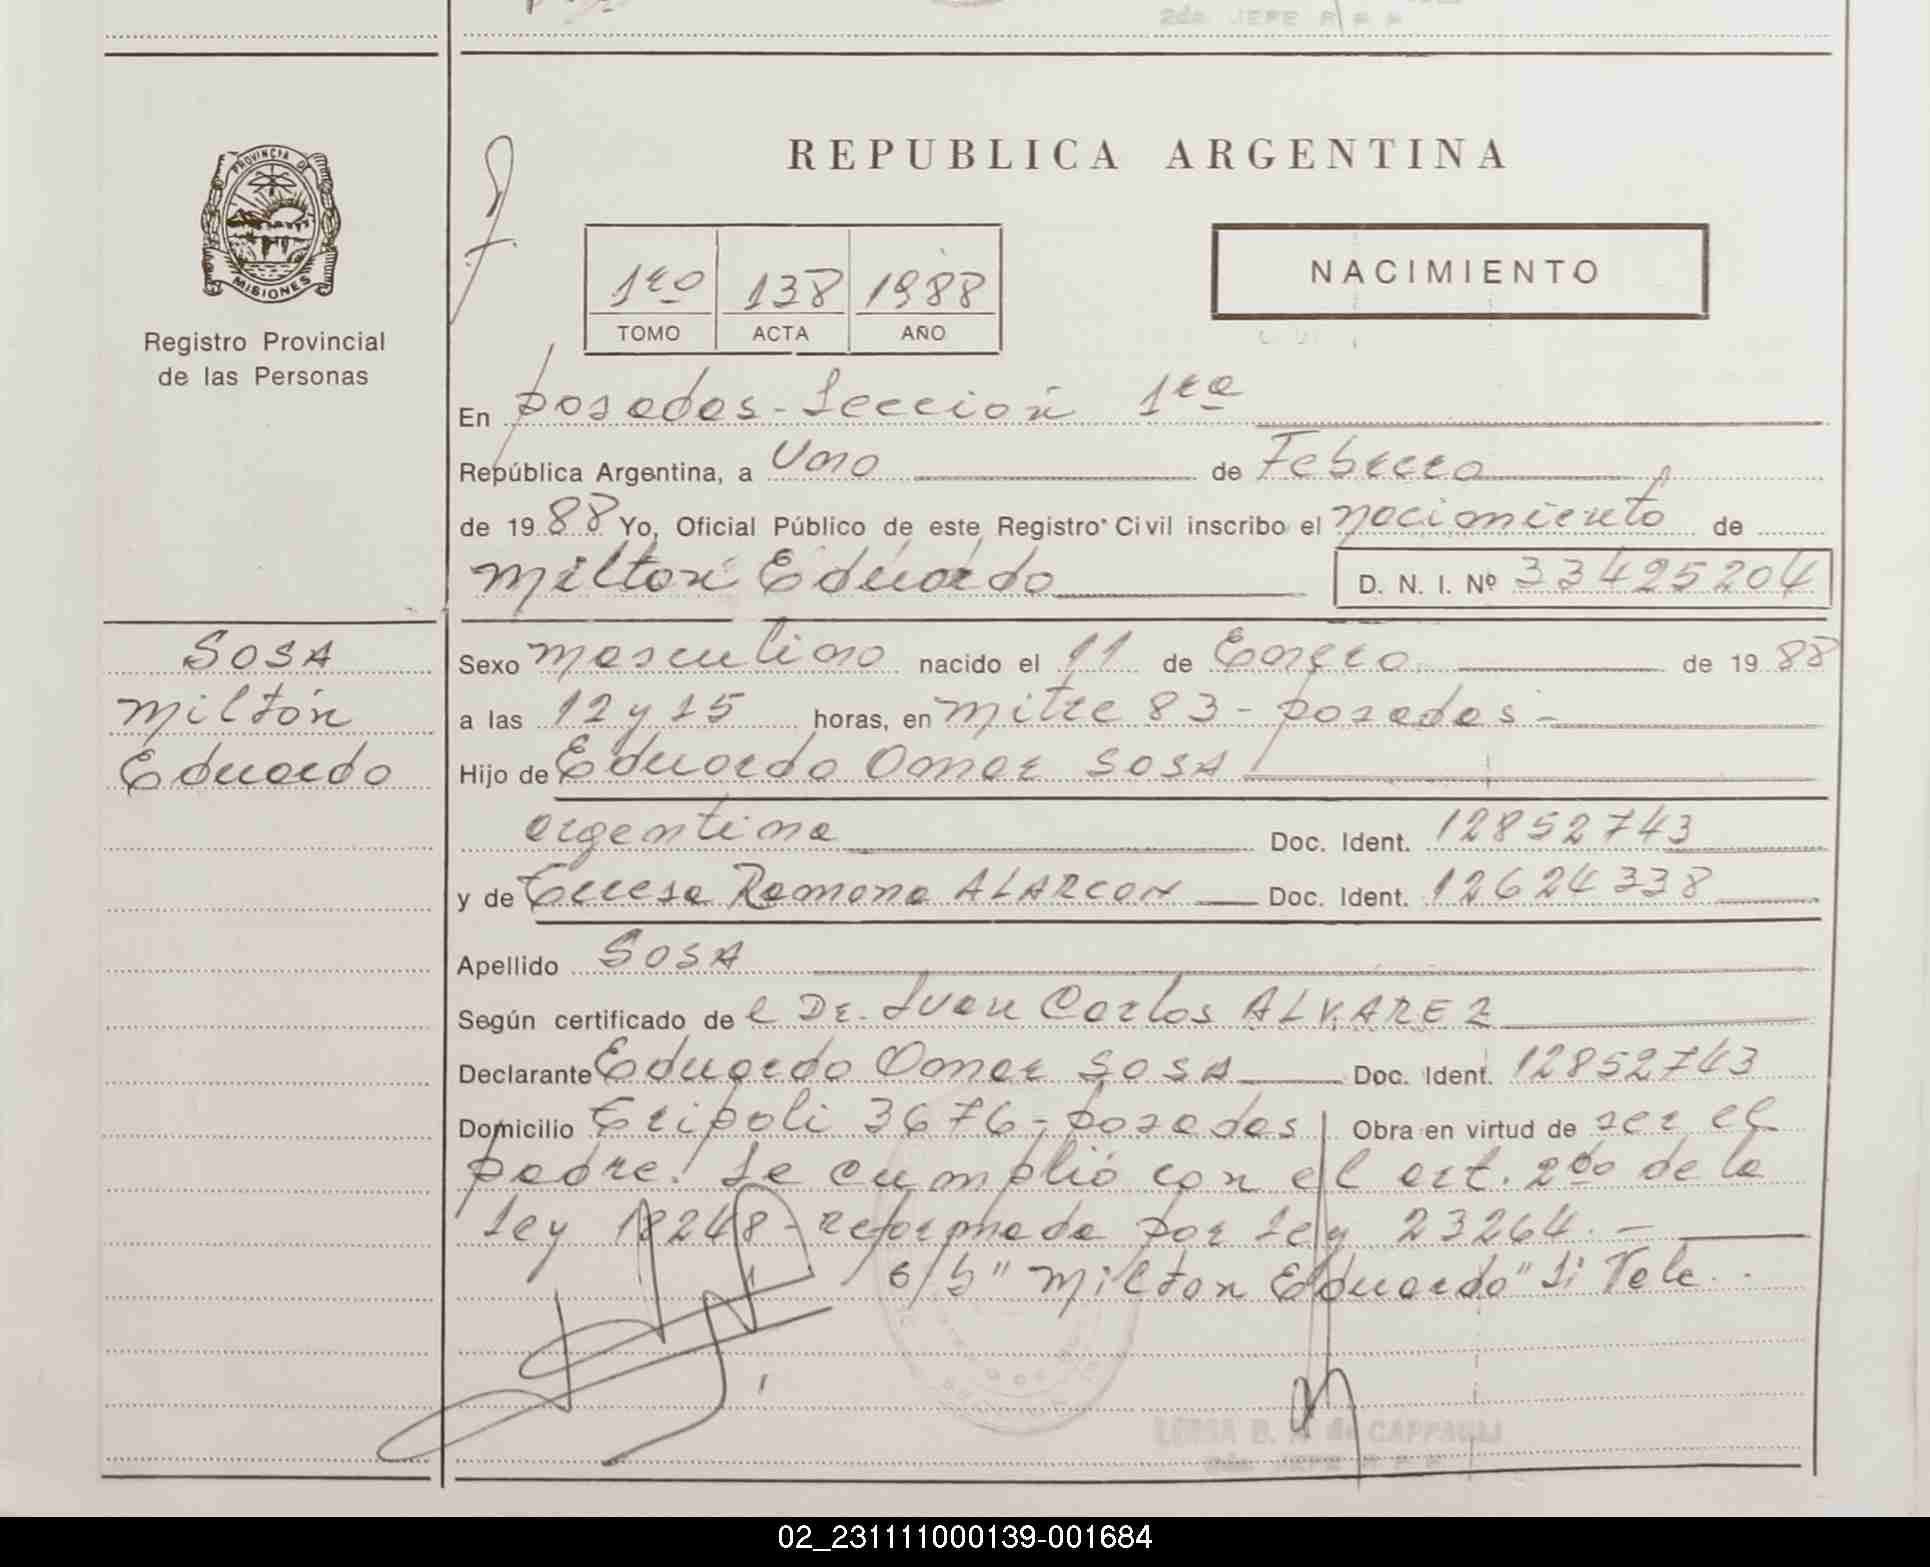 2da JEFE R P P
PROVINCIA DE
MISIONES
Registro Provincial
de las Personas
REPUBLICA ARGENTINA
1ro 138 1988
TOMO ACTA AÑO
NACIMIENTO
En Posadas - Sección 1ra
República Argentina, a Uno de Febrero
de 1988 Yo, Oficial Público de este Registro Civil inscribo el nacimiento de
Milton Eduardo D. N. I. Nº 33425204
SOSA
Milton
Eduardo
Sexo masculino nacido el 11 de Enero de 1988
a las 12 y 15 horas, en Mitre 83 - Posadas -
Hijo de Eduardo Omar SOSA
argentina Doc. Ident. 12852743
y de Teresa Ramona ALARCON Doc. Ident. 12624338
Apellido SOSA
Según certificado del Dr. Juan Carlos ALVAREZ
Declarante Eduardo Omar SOSA Doc. Ident. 12852743
Domicilio Tripoli 3676 - Posadas Obra en virtud de ser el
padre. Se cumplió con el art. 2do de la
Ley 18248 - reformada por Ley 23264. -
s/b "Milton Eduardo" Si Vale.
B. de CAPPAULI
2da JEFE R P P
02_231111000139-001684